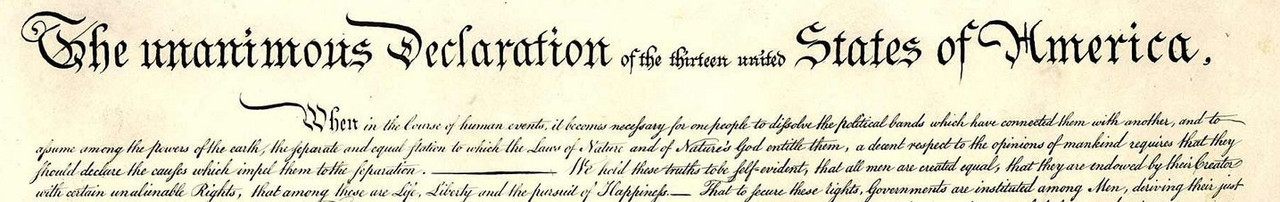 The unanimous Declaration of the thirteen united States of America,
When in the Course of human events, it becomes necessary for one people to dissolve the political bands which have connected them with another, and to
assume among the powers of the earth, the separate and equal station to which the Laws of Nature and of Nature's God entitle them, a decent respect to the opinions of mankind requires that they
should declare the causes which impel them to the separation. ——— We hold these truths to be self-evident, that all men are created equal, that they are endowed by their Creator
with certain unalienable Rights, that among these are Life, Liberty and the pursuit of Happiness.— That to secure these rights, Governments are instituted among Men, deriving their just